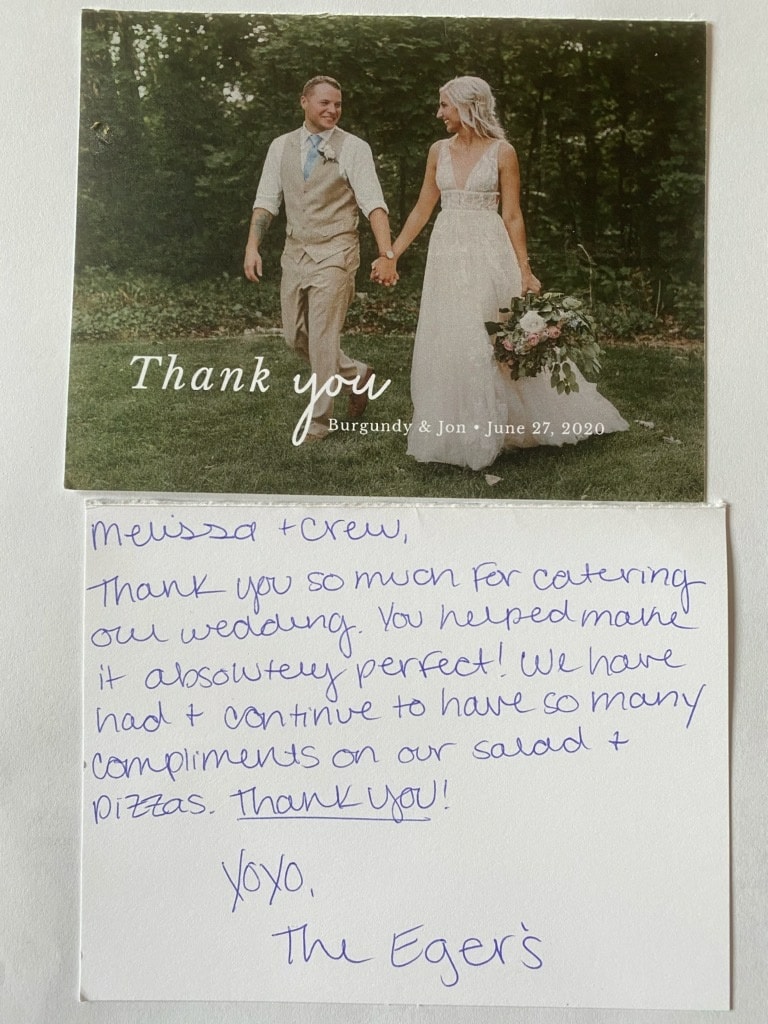 Thank you
Burgundy & Jon • June 27, 2020
Melissa + Crew,
Thank you so much for catering
our wedding. You helped make
it absolutely perfect! We have
had + continue to have so many
compliments on our salad +
pizzas. Thank you!
XOXO,
The Eger's